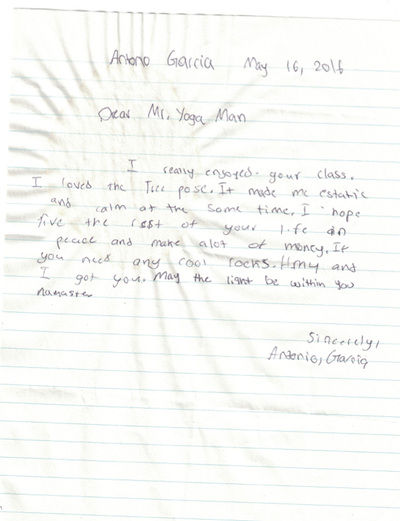 Antono Garcia May 16, 2016
Dear Mr. Yoga Man
I really enjoyed your class.
I loved the Tree pose. It made me estatic
and calm at the same time. I hope
live the rest of your life in
peace and make alot of money. If
you need any cool rocks. and
I got you. May the light be within you
namaste
Sincerely,
Antonio, Garcia